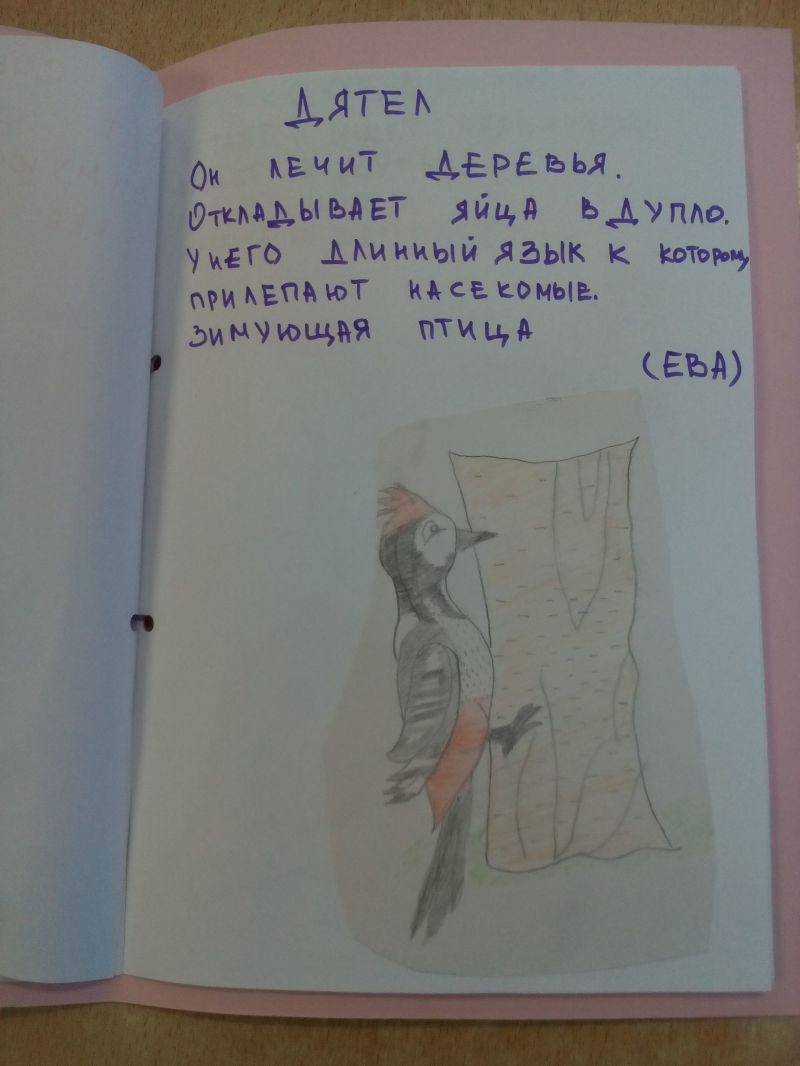 ДЯТЕЛ
Он ЛЕЧИТ ДЕРЕВЬЯ.
ОТКЛАДЫВАЕТ ЯЙЦА В ДУПЛО.
У НЕГО ДЛИННЫЙ ЯЗЫК К КОТОРОМУ
ПРИЛЕПАЮТ НАСЕКОМЫЕ.
ЗИМУЮЩАЯ ПТИЦА
(ЕВА)